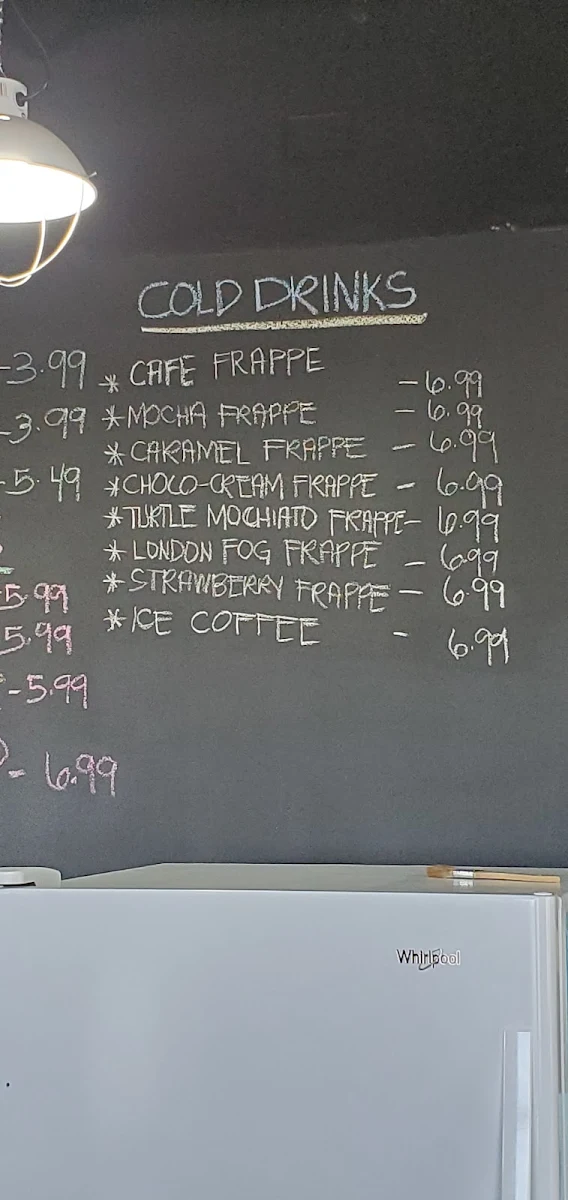 COLD DRINKS
-3.99
* CAFE FRAPPE - 6.99
-3.99
* MOCHA FRAPPE - 6.99
* CARAMEL FRAPPE - 6.99
-5.49
* CHOCO-CREAM FRAPPE - 6.99
* TURTLE MOCHIATO FRAPPE - 6.99
* LONDON FOG FRAPPE - 6.99
-5.99
* STRAWBERRY FRAPPE - 6.99
5.99
* ICE COFFEE - 6.99
-5.99
- 6.99
Whirlpool